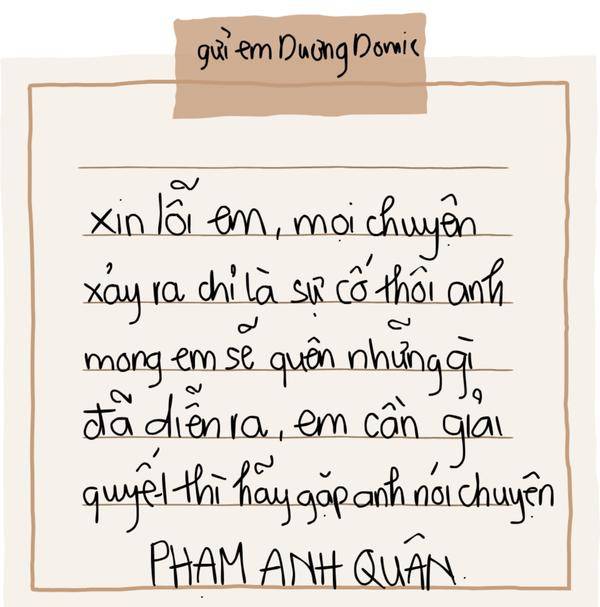 gửi em Dương Domic
xin lỗi em, mọi chuyện
xảy ra chỉ là sự cố thôi anh
mong em sẽ quên những gì
đã diễn ra, em cần giải
quyết thì hãy gặp anh nói chuyện
PHAM ANH QUÂN.